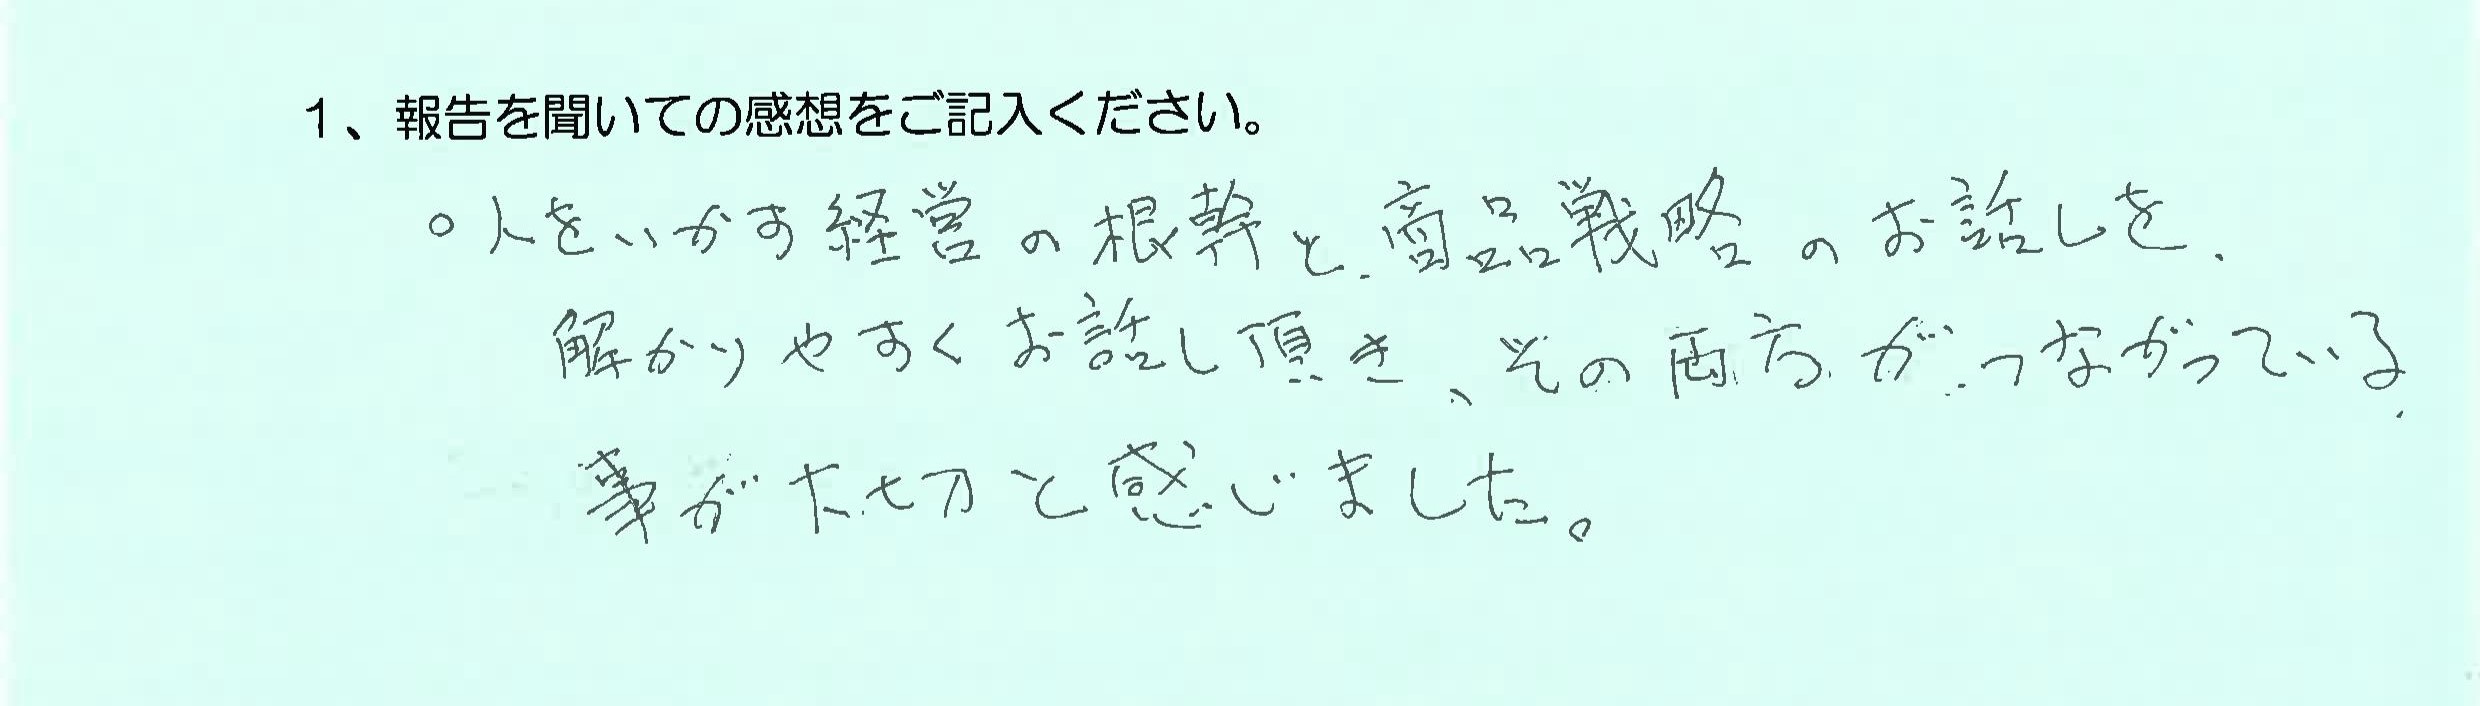 1、報告を聞いての感想をご記入ください。
○人をいかす経営の根幹と商品戦略のお話しを、
解かりやすくお話し頂き、その両方がつながっている
事が大切と感じました。